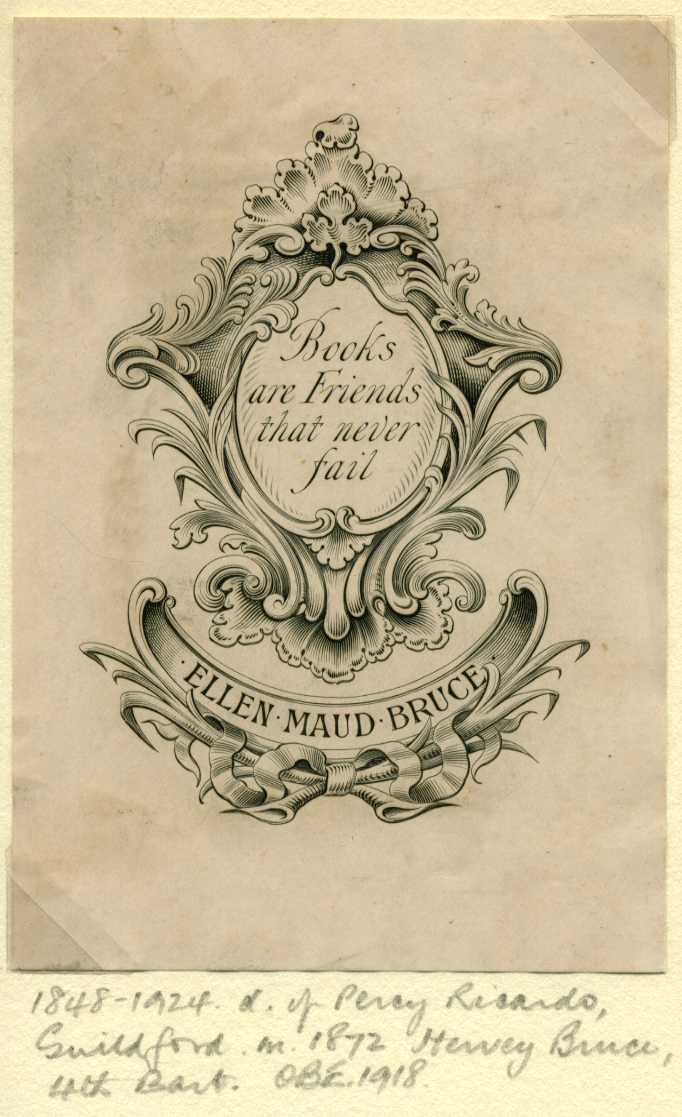 Books
are Friends
that never
fail
·ELLEN·MAUD·BRUCE·
1848-1924. d. of Percy Ricardo,
Guildford. m. 1872 Hervey Bruce,
4th Bart. OBE.1918.